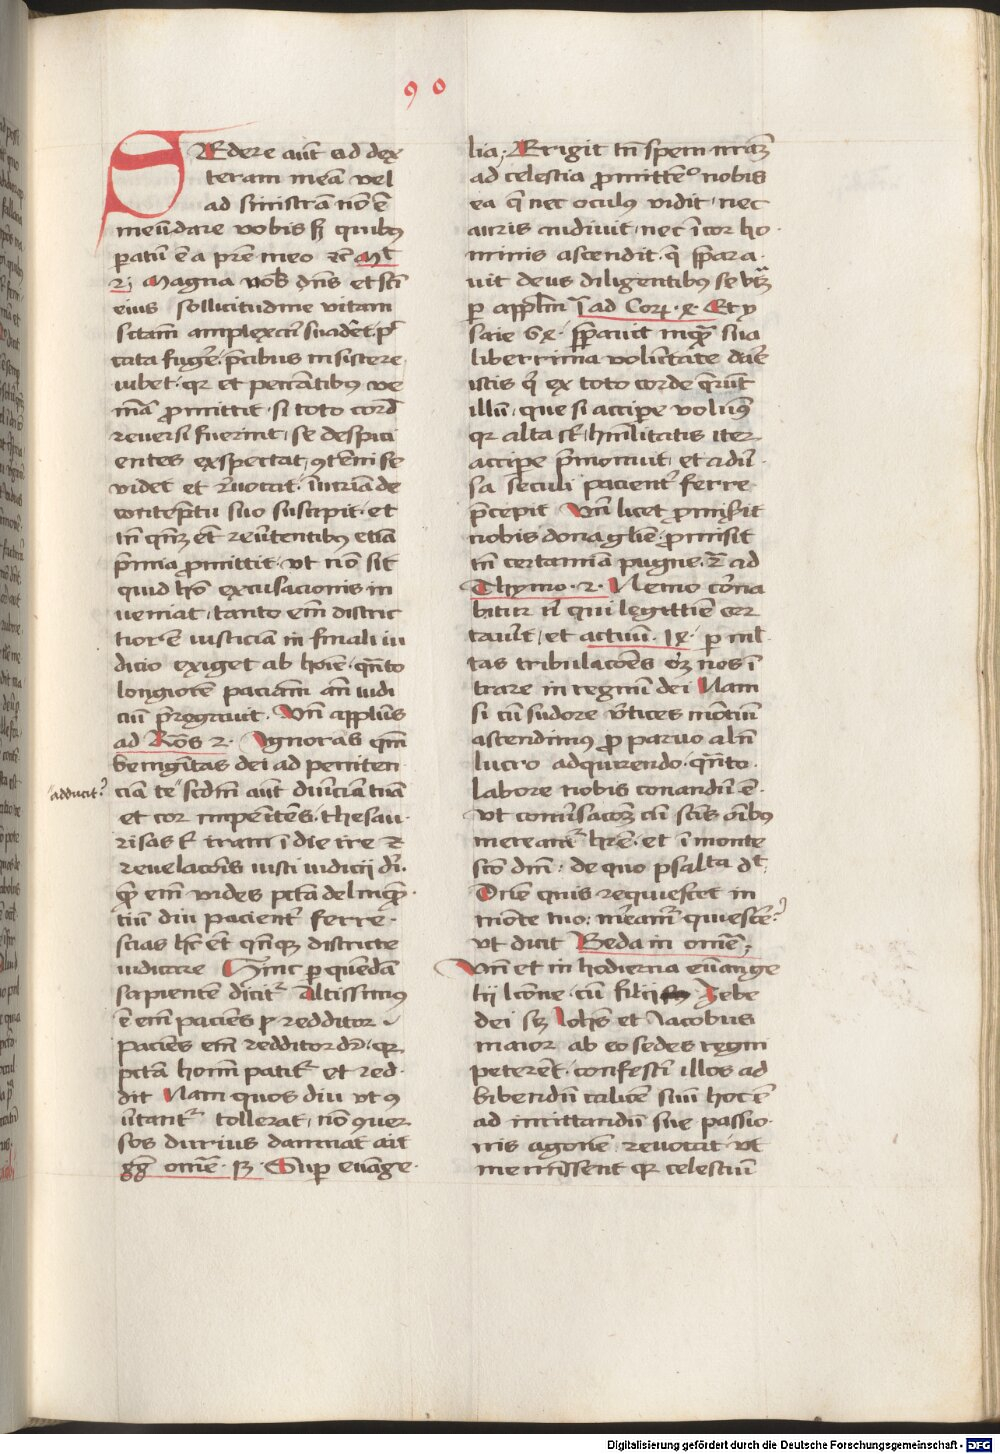 90
SEdere aut̄ ad dex
teram meā vel
ad sinistrā nō ē
meū dare vobis sꝫ quibus
patū ē a pr̄e meo ⁊c̄ Mt͛
2j Magna nob̄ dn̄s et sc̄i
eius sollicitudine vitam
sc̄tam amplexari suadet p̄c
cata fuge͛ p̄cibus insistere
iubet · qꝛ et peccantibus ve
niā ꝓmittit · si toto cord̄
reuersi fuerint, se despici
entes exspectat,
videt et r̄uocat
contēptu suo suscipit · et
tn̄ ēt reūtentibus etiā
p̄mia ꝓmittit · vt nō sit
quid hō excusacionis in
ueniat, tanto em̄ distric
tiorē iusticiam in finali iu
dicio exiget ab hoīe · qn̄to
longiorē paciam̄ an̄ iudi
ciū p̄rogauit. Vn̄ applūs
ad Ro͞s 2 · Ignoras qm̄
benigtas dei ad peniten
adducit?
ciā te scd̄m aut̄ duriciam tuā
et cor inpenitēs, thesau ·
risas iram ī die ire ⁊
reuelacōis iusti iudicij di͛.
em̄ vides pctā delinqn̄
tiū diu pacient͛ ferre ·
scias hc̄ ēt qn̄qꝫ districte
iudicare Hinc p quendā
sapientē dicit͛ Altissimus
ē em̄ paciēs redditor
paciēs em̄ redditor dr̄ · qꝛ
pctā hoīm patit͛ et red ·
dit Nam quos diu vt 9
ūtant͛ tollerat, nō 9uer
sos durius damnat ait
gḡ omē · Sup euange ·
lia; Erigit tn̄ spem nrāꝫ
ad celestia ꝓmittens nobis
ea q̄ nec oculus vidit · nec
auris audiuit, nec ī cor ho ·
minis ascendit · q̄ p̄para ·
uit deus diligentibus se
p appl̄m j ad Cor. Et y
saie 64 · p̄parauit inqn̄ sua
liberrima volūtate dare
istis q̄ ex toto corde q̄runt
illū, que si accipe volum9
qꝛ alta sūt, humilitatis iter
accipe p̄monuit, et aduer
sa seculi pacient͛ ferre
p̄cepit Vn̄ licet ꝓmiserit
nobis dona glīe, ꝓmisit
tn̄ certamīa pugne. 2ª ad
Thymo · 2 · Nemo corona
bitur n͛ qui legittīe cer
tauerit, et actuū · 14 · p ml̄
tas tribulacōes oꝫ nos ī
trare in regnū dei Nam
si cū sudore v͛tices mōtiū
ascendimus ꝓ paruo aln̄
lucro adquirendo · qn̄to ·
labore nobis conandū ē ·
vt conūsacōꝫ cū sc̄is oībus
mereamur hr̄e · et ī monte
sc̄o dn̄i : de quo psalta dt͛
Dn̄e quis requiescet in
monte tuo : mereamur quiescere?
vt dicit Beda in omē;
Vn̄ et in hodierna euange
lij lcōne · cū filij Zebe
dei sꝫ Johes et Jacobus
maior ab eo sedes regni
peterēt · confesti illos ad
bibendū calicē suū hoc ē
ad imittandū sue passio ·
nis agonē reuocat, vt
meminissent qꝛ celestiū
Digitalisierung gefördert durch die Deutsche Forschungsgemeinschaft - DFG